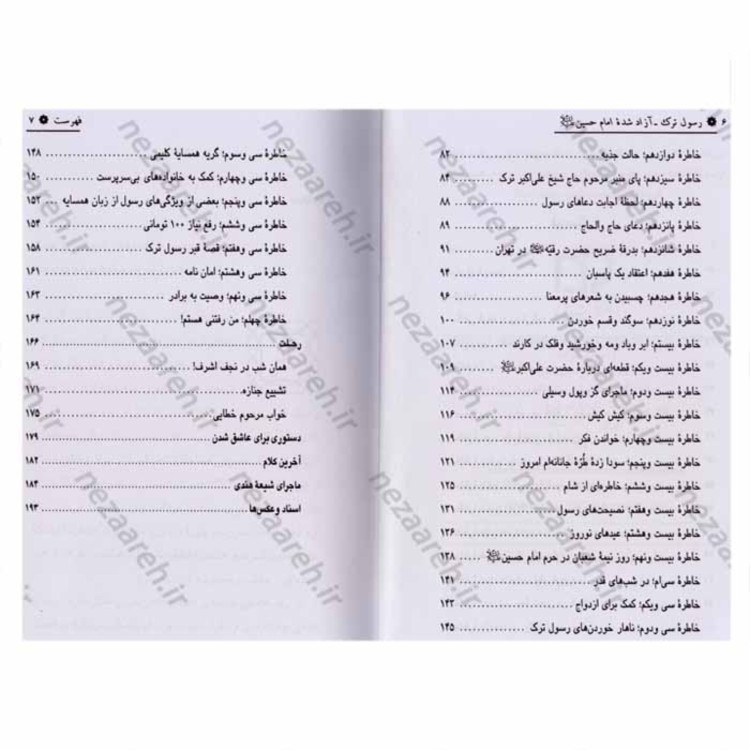 ۶ رسول ترک - آزاد شدهٔ امام حسین
خاطرهٔ دوازدهم؛ حالت جذبه ... ۸۲
خاطرهٔ سیزدهم؛ پای منبر مرحوم حاج شیخ علی‌اکبر ترک ... ۸۴
خاطرهٔ چهاردهم؛ لحظهٔ اجابت دعاهای رسول ... ۸۸
خاطرهٔ پانزدهم؛ دعای حاج والحاج ... ۸۹
خاطرهٔ شانزدهم؛ بدرقهٔ ضریح حضرت رقیه در تهران ... ۹۱
خاطرهٔ هفدهم؛ اعتقاد یک پاسبان ... ۹۴
خاطرهٔ هجدهم؛ چسبیدن به شعرهای پرمعنا ... ۹۶
خاطرهٔ نوزدهم؛ سوگند وقسم خوردن ... ۱۰۰
خاطرهٔ بیستم؛ ابر وباد ومه وخورشید وفلک در کارند ... ۱۰۷
خاطرهٔ بیست ویکم؛ قطعه‌ای دربارهٔ حضرت علی‌اکبر ... ۱۰۹
خاطرهٔ بیست ودوم؛ ماجرای گز وپول وسیلی ... ۱۱۴
خاطرهٔ بیست وسوم؛ کیش کیش ... ۱۱۶
خاطرهٔ بیست وچهارم؛ خواندن فکر ... ۱۱۹
خاطرهٔ بیست وپنجم؛ سودا زدهٔ طُرّهٔ جانانه‌ام امروز ... ۱۲۱
خاطرهٔ بیست وششم؛ خاطره‌ای از شام ... ۱۲۵
خاطرهٔ بیست وهفتم؛ نصیحت‌های رسول ... ۱۳۱
خاطرهٔ بیست وهشتم؛ عیدهای نوروز ... ۱۳۶
خاطرهٔ بیست ونهم؛ روز نیمهٔ شعبان در حرم امام حسین ... ۱۳۸
خاطرهٔ سی‌ام؛ در شب‌های قدر ... ۱۴۱
خاطرهٔ سی ویکم؛ کمک برای ازدواج ... ۱۴۳
خاطرهٔ سی ودوم؛ ناهار خوردن‌های رسول ترک ... ۱۴۵
فهرست ۷
خاطرهٔ سی وسوم؛ گریه همسایهٔ کلیمی ... ۱۴۸
خاطرهٔ سی وچهارم؛ کمک به خانواده‌های بی‌سرپرست ... ۱۵۰
خاطرهٔ سی وپنجم؛ بعضی از ویژگی‌های رسول از زبان همسایه ... ۱۵۲
خاطرهٔ سی وششم؛ رفع نیاز ۱۰۰ تومانی ... ۱۵۴
خاطرهٔ سی وهفتم؛ قصهٔ قبر رسول ترک ... ۱۵۸
خاطرهٔ سی وهشتم؛ امان نامه ... ۱۶۱
خاطرهٔ سی ونهم؛ وصیت به برادر ... ۱۶۳
خاطرهٔ چهلم؛ من رفتنی هستم! ... ۱۶۴
رحلت ... ۱۶۶
همان شب در نجف اشرف! ... ۱۶۹
تشییع جنازه ... ۱۷۱
خواب مرحوم خطایی ... ۱۷۵
دستوری برای عاشق شدن ... ۱۷۹
آخرین کلام ... ۱۸۲
ماجرای شیعهٔ هندی ... ۱۸۴
اسناد وعکس‌ها ... ۱۹۳
nezaareh.ir